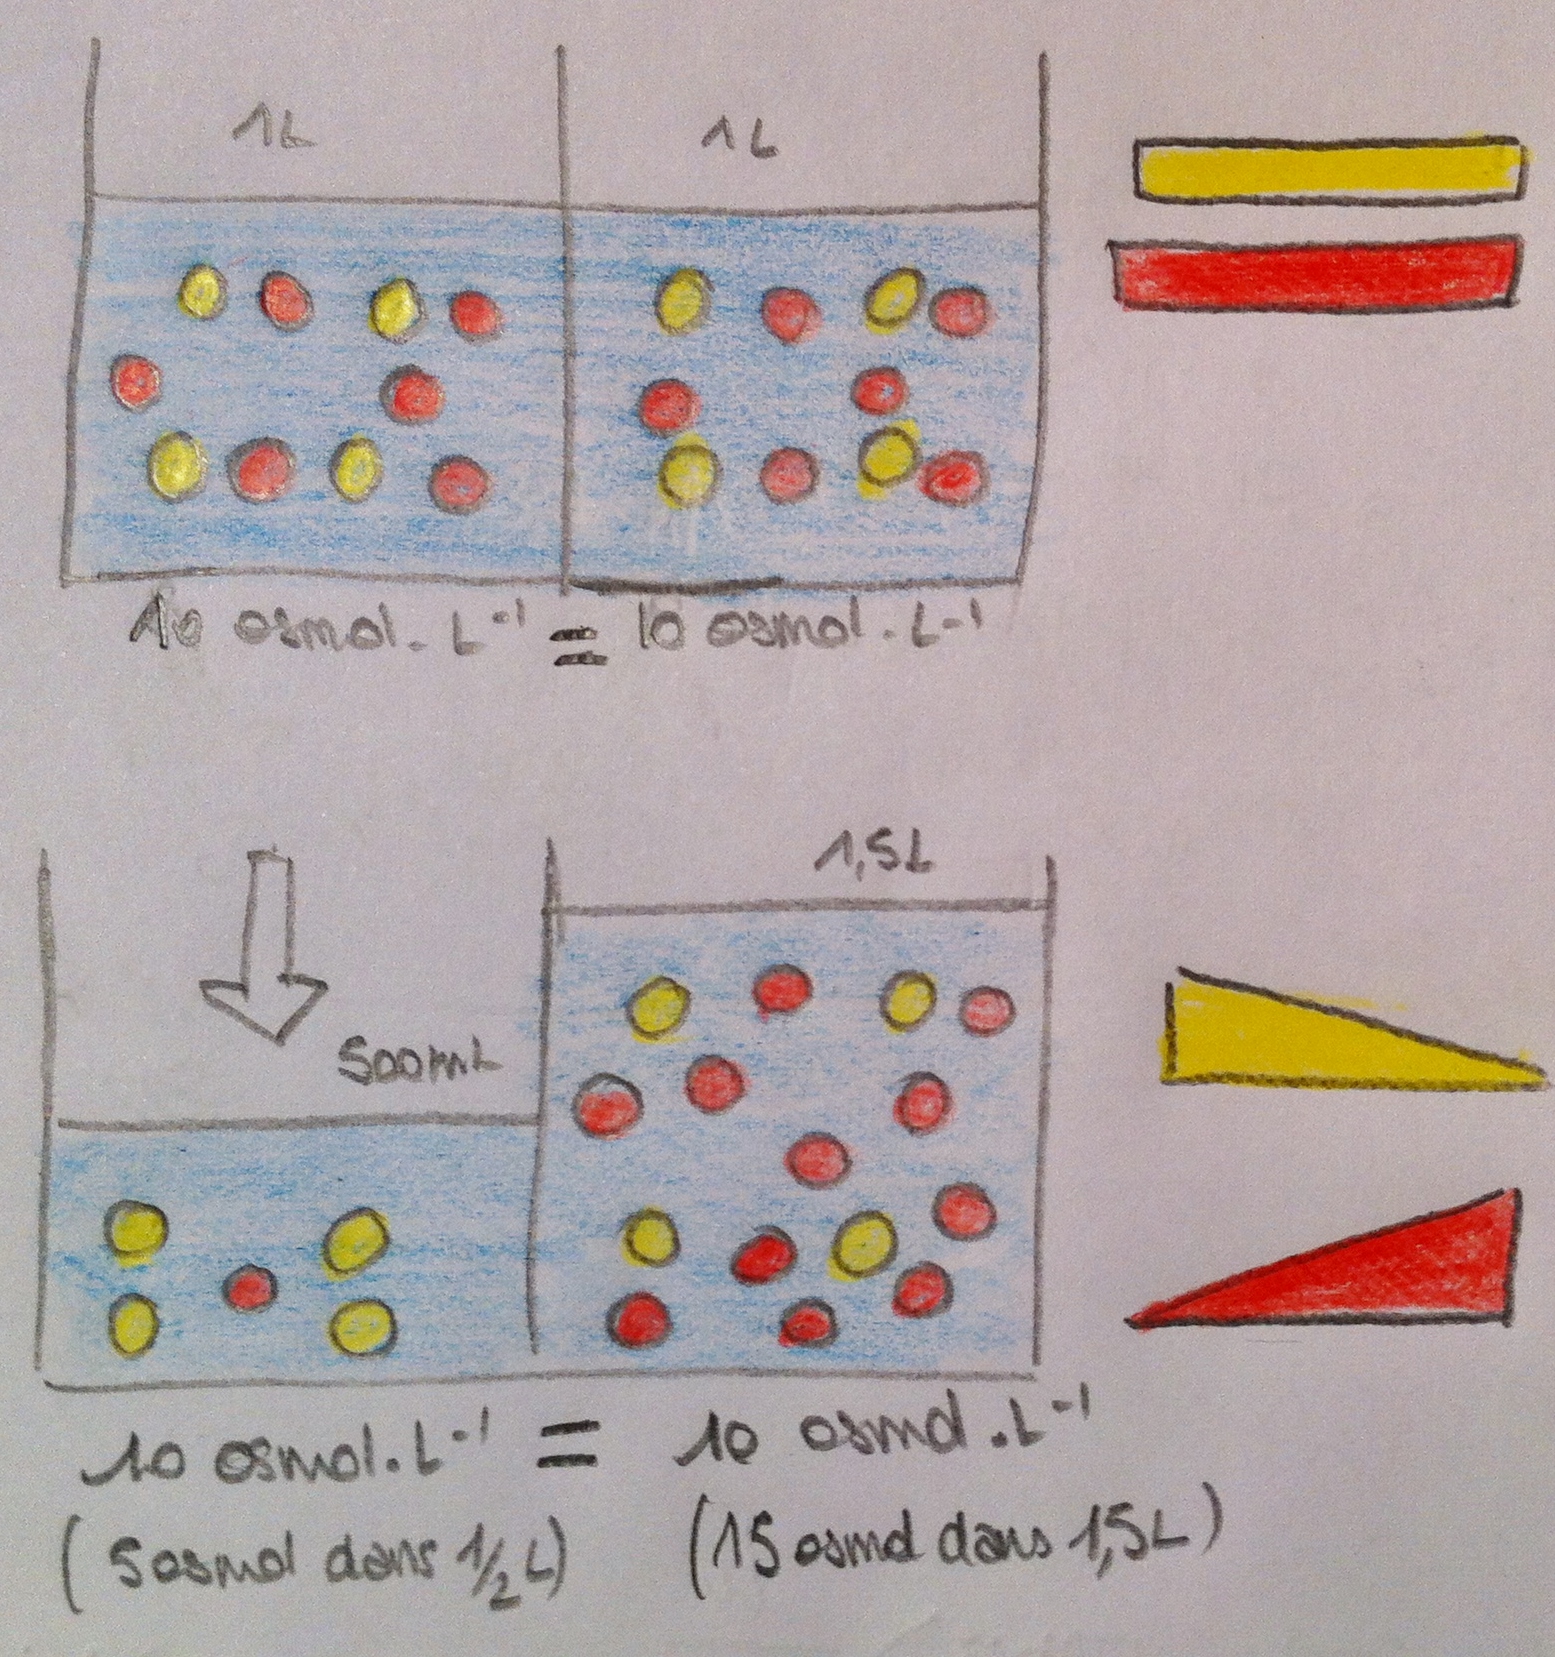 1L
1L
10 osmol.L⁻¹ = 10 osmol.L-1
1,5L
500mL
10 osmol.L⁻¹ = 10 osmol.L⁻¹
(5osmol dans 1/2 L) (15 osmol dans 1,5L)